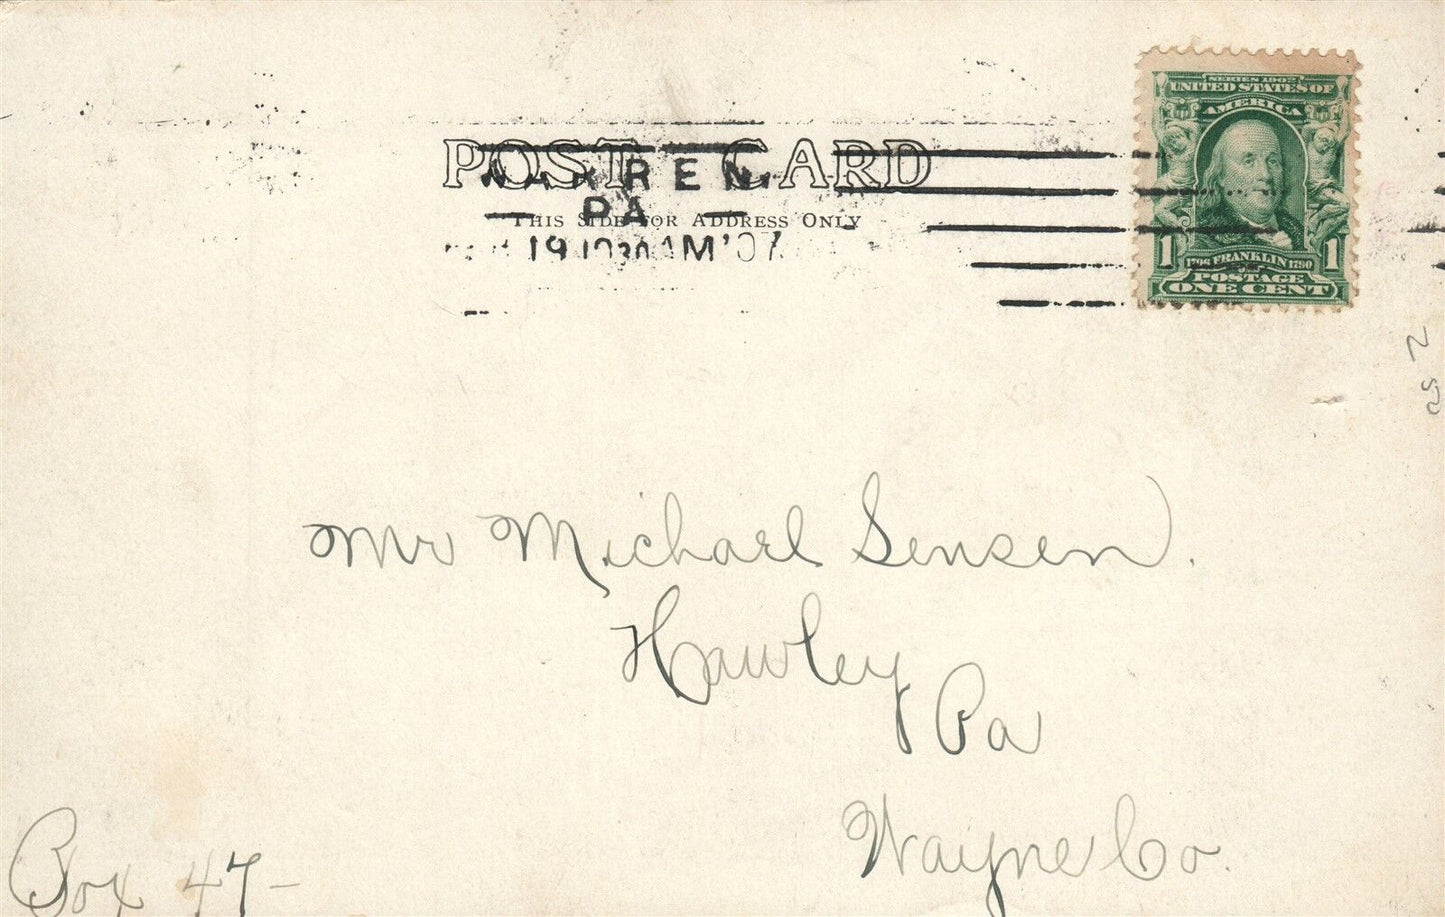 POST CARD
THIS SIDE FOR ADDRESS ONLY
WARREN
PA
19 1030 AM '07
SERIES 1902
UNITED STATES OF
AMERICA
1 1
1706 FRANKLIN 1790
POSTAGE
ONE CENT
Mr Michael Sensen.
Hawley
Pa
Wayne Co.
Box 47-